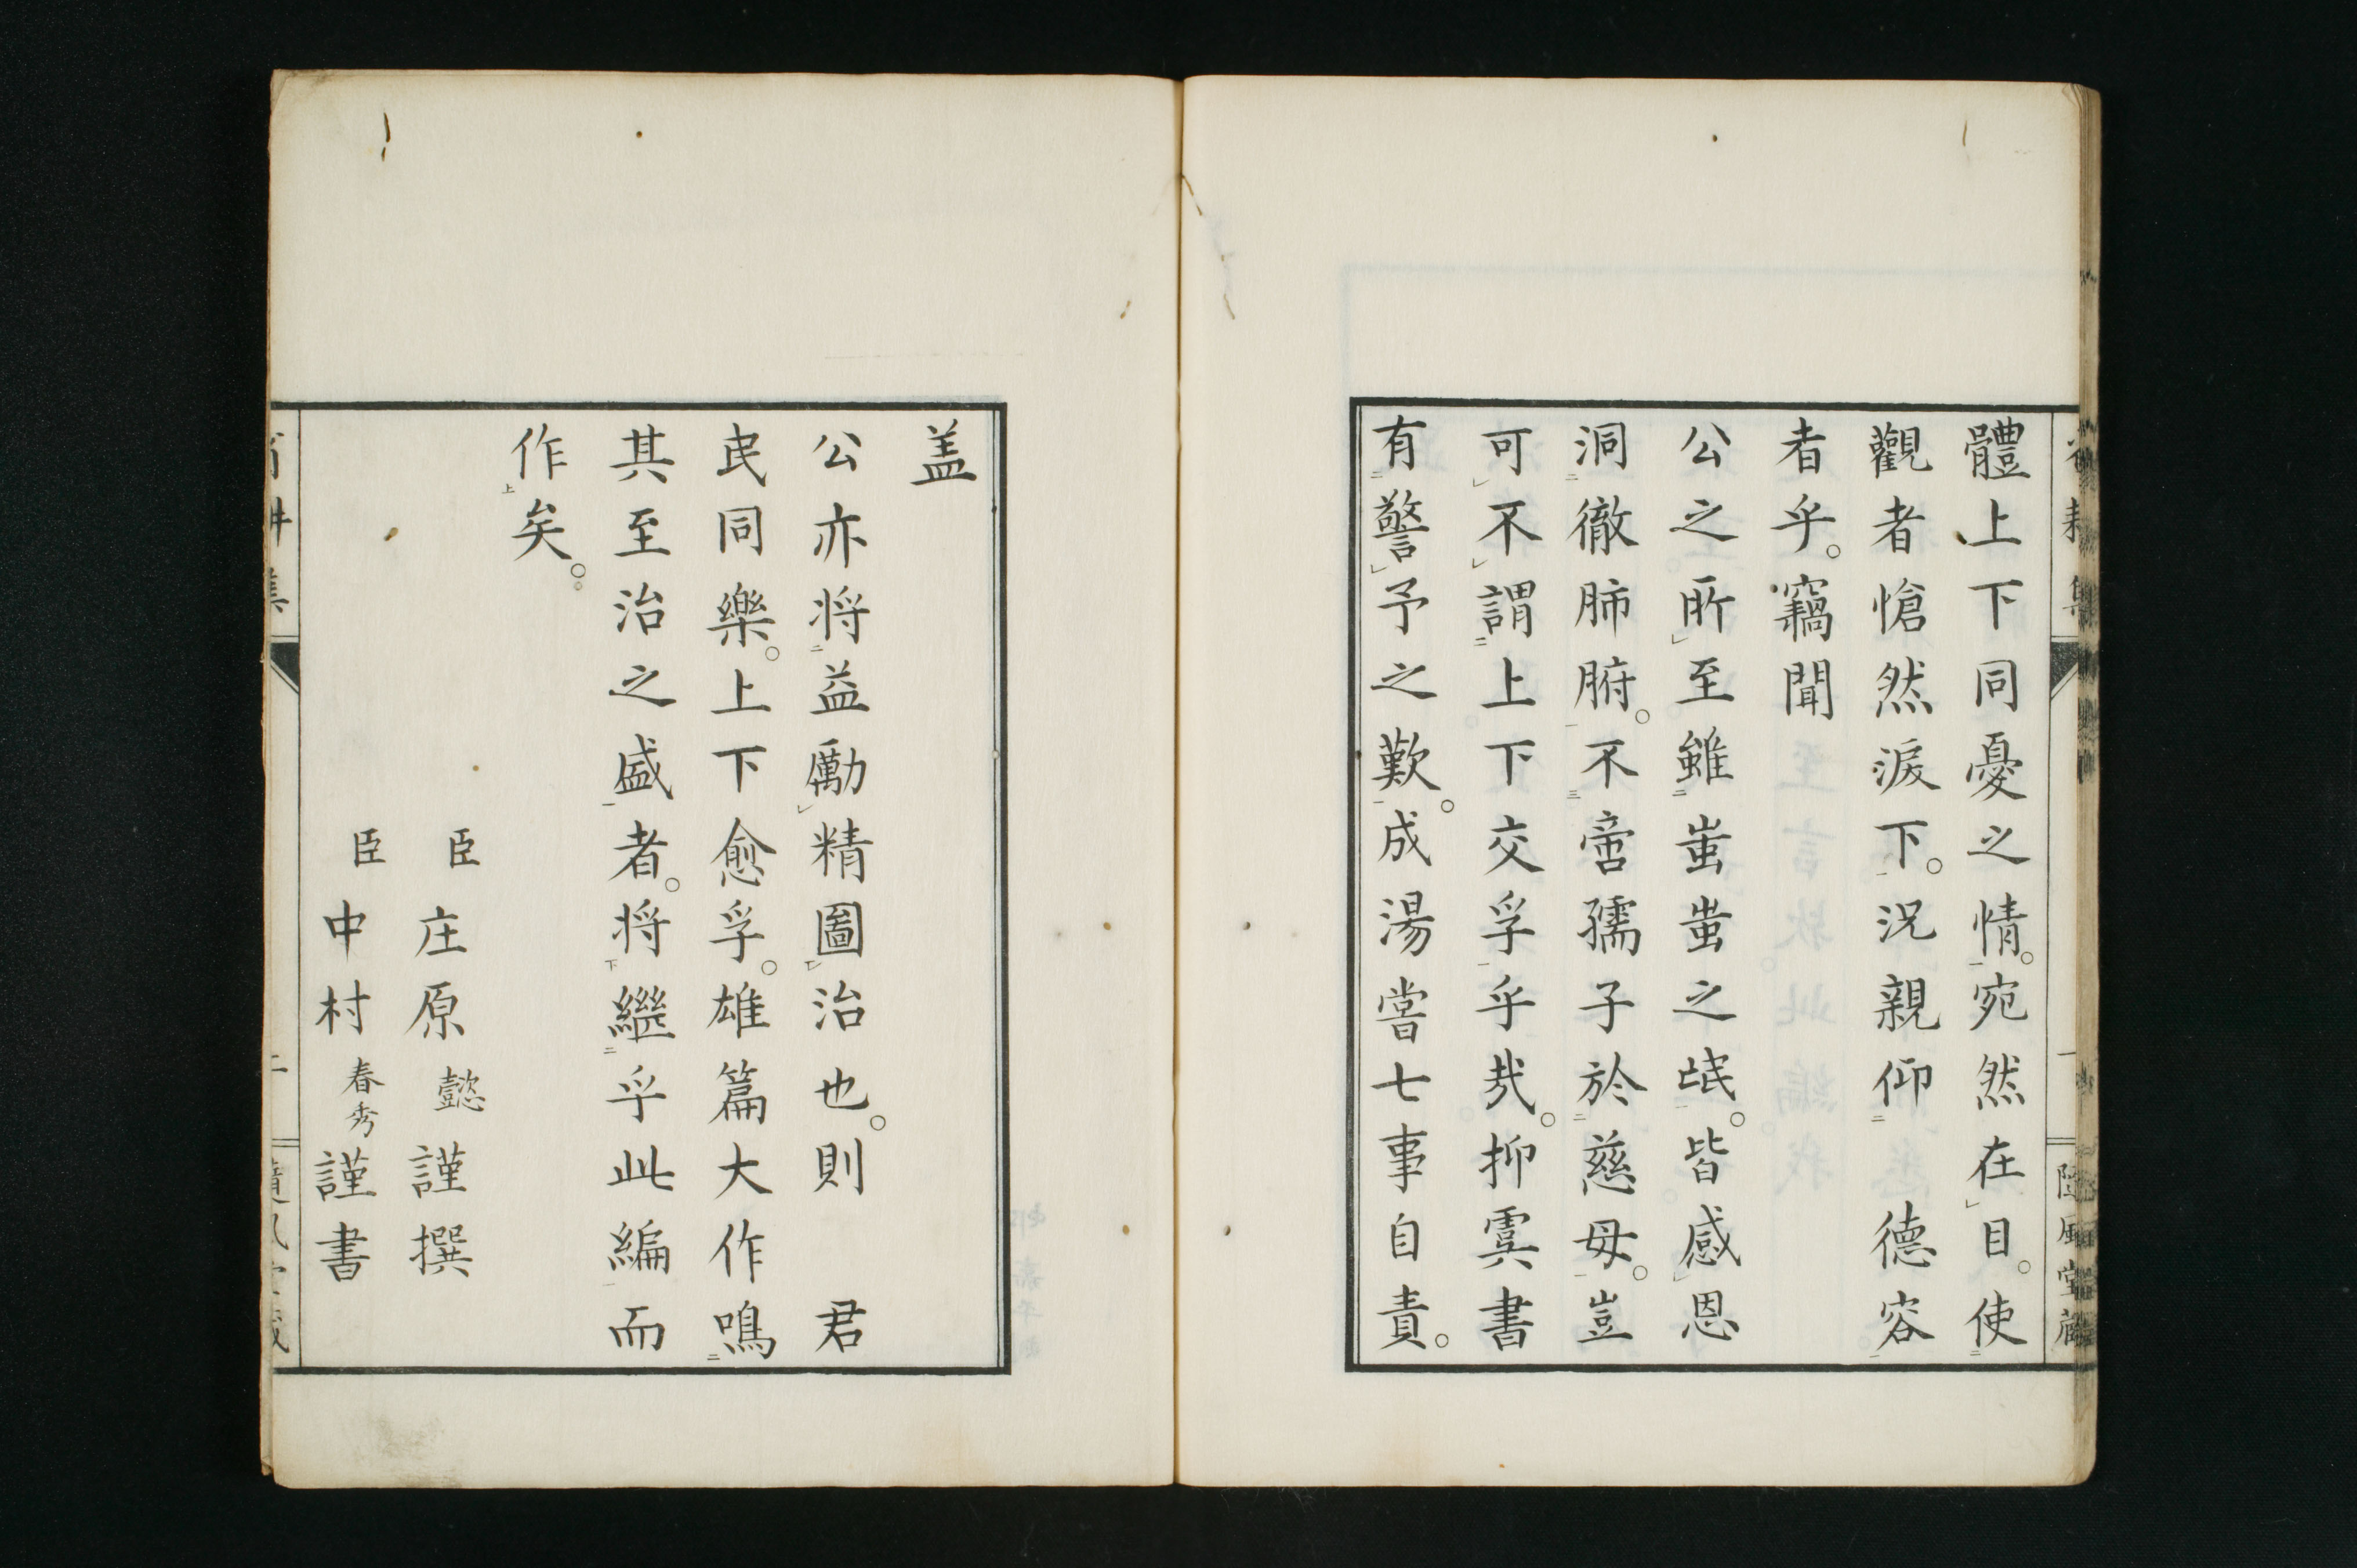 體上下同憂之情。宛然在目。使
觀者愴然淚下。況親仰 德容
者乎。竊聞
公之所至雖蚩蚩之氓。皆感恩
洞徹肺腑。不啻孺子於慈母。豈
可不謂上下交孚乎哉。抑虞書
有警予之歎。成湯嘗七事自責。
盖
公亦将益勵精圖治也。則 君
民同樂。上下愈孚。雄篇大作鳴
其至治之盛者。将繼乎此編而
作矣。
臣庄原懿謹撰
臣中村春秀謹書